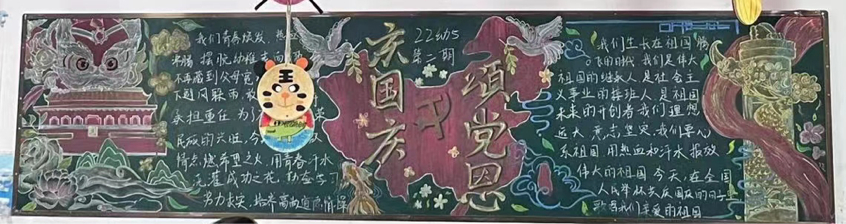 我们青春焕发
摆脱幼稚走向
不再留到父母
下避风躲雨
承担重任 为
民族的兴旺,今
情点燃希望之火,用青春汗水
浇灌成功之花,勤奋学习
努力求实,培养高尚道德情操
22幼5
第二期
庆国庆
颂党恩
我们生长在祖国腾
飞的时代 我们是伟大
祖国的继承人 是社会主
义事业的接班人 是祖国
未来的开创者 我们理想
远大 意志坚定,我们要心
系祖国 用热血和汗水 报效
伟大的祖国 今天,在全国
人民举杯共庆国庆的日子里
歌唱我们亲爱的祖国